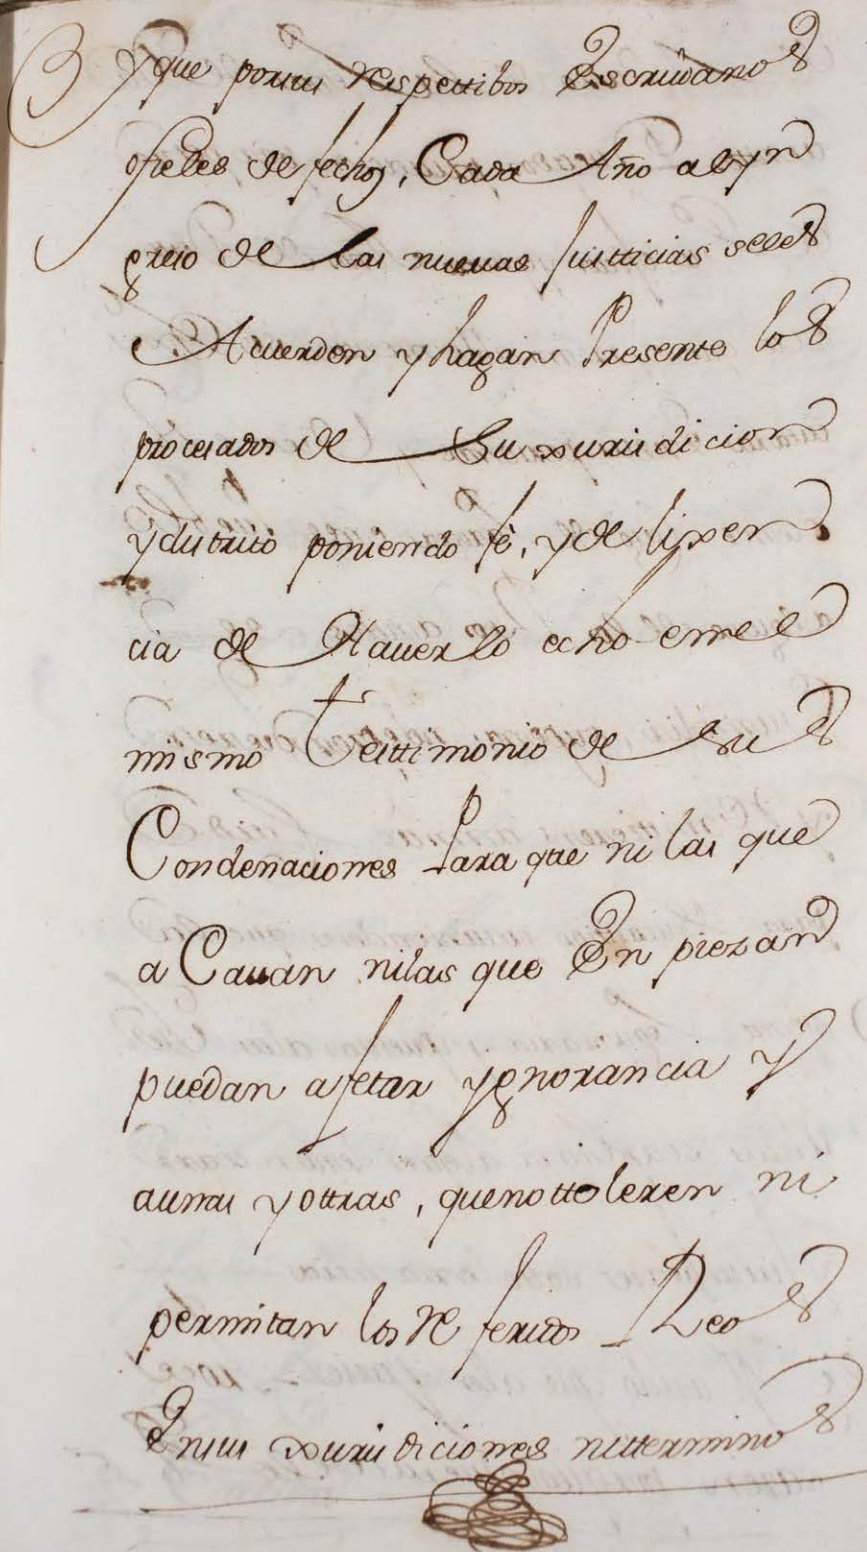 y que por sus respecttibos Escriuanos
o fieles de fechos, Cada Año al yn
greso de las nueuas Justticias seles
Acuerden y hagan Presente los
procesados de Su xurisdicion
y distrito poniendo fè, y de lixen
cia de Hauerlo echo en el
mismo Testtimonio de sus
Condenaciones Para que ni las que
a Cauan nilas que En piezan
puedan afetar ygnorancia y
aunas y ottras, que no ttoleren ni
permitan los Re feridos Reos
Ensus xurisdiciones nitterminos